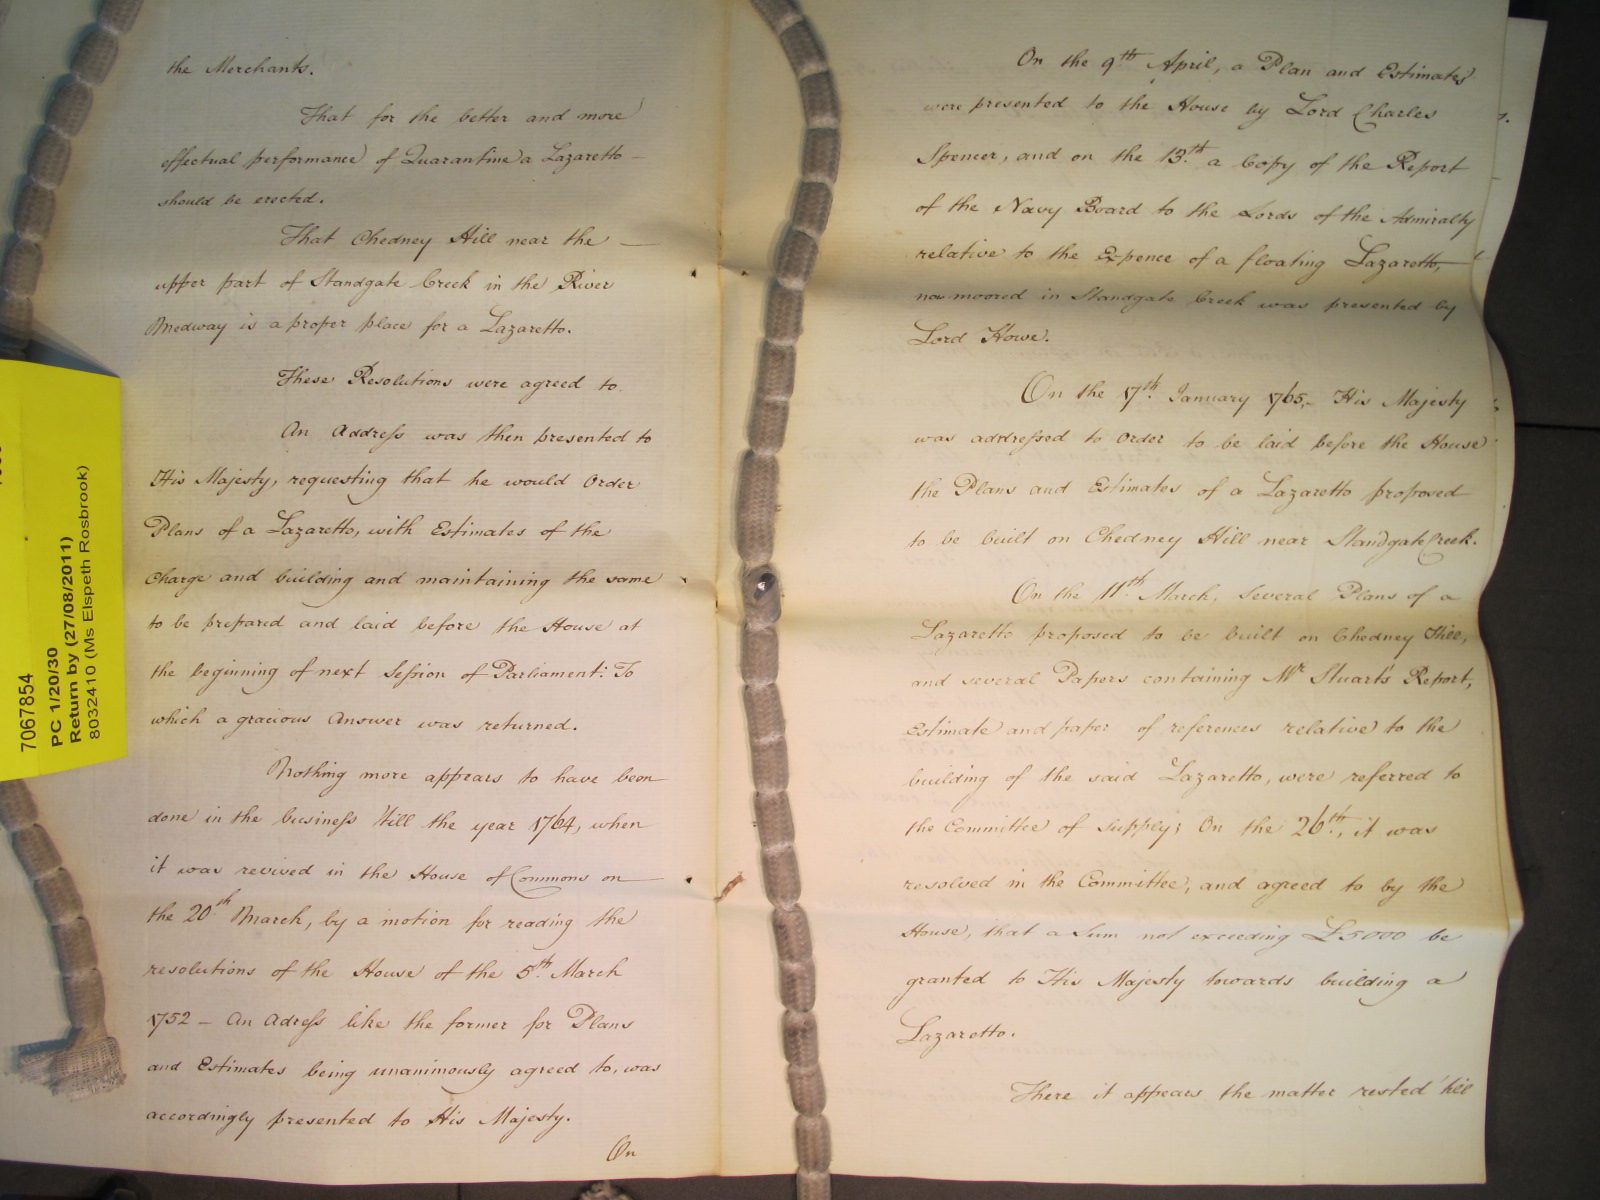 the Merchants.
That for the better and more
effectual performance of Quarantine a Lazaretto
should be erected.
That Chedney Hill near the
upper part of Standgate Creek in the River
Medway is a proper place for a Lazaretto.
These Resolutions were agreed to.
An Address was then presented to
His Majesty, requesting that he would Order
Plans of a Lazaretto, with Estimates of the
Charge and building and maintaining the same
to be prepared and laid before the House at
the beginning of next Session of Parliament: To
which a gracious Answer was returned.
Nothing more appears to have been
done in the business 'till the year 1764, when
it was revived in the House of Commons on
the 20th March, by a motion for reading the
resolutions of the House of the 5th March
1752 – An Adress like the former for Plans
and Estimates being unanimously agreed to, was
accordingly presented to His Majesty.
On
On the 9th April, a Plan and Estimates
were presented to the House by Lord Charles
Spencer, and on the 13th a Copy of the Report
of the Navy Board to the Lords of the Admiralty
relative to the Expence of a floating Lazaretto,
now moored in Standgate Creek was presented by
Lord Howe.
On the 17th January 1765, His Majesty
was addressed to Order to be laid before the House
the Plans and Estimates of a Lazaretto proposed
to be built on Chedney Hill near Standgate Creek.
On the 11th March, several Plans of a
Lazaretto proposed to be built on Chedney Hill,
and several Papers containing Mr Stuart's Report,
Estimate and paper of references relative to the
building of the said Lazaretto, were referred to
the Committee of Supply; On the 26th, it was
resolved in the Committee, and agreed to by the
House, that a Sum not exceeding £5000 be
granted to His Majesty towards building a
Lazaretto.
There it appears the matter rested 'till
7067854
PC 1/20/30
Return by (27/08/2011)
8032410 (Ms Elspeth Rosbrook)